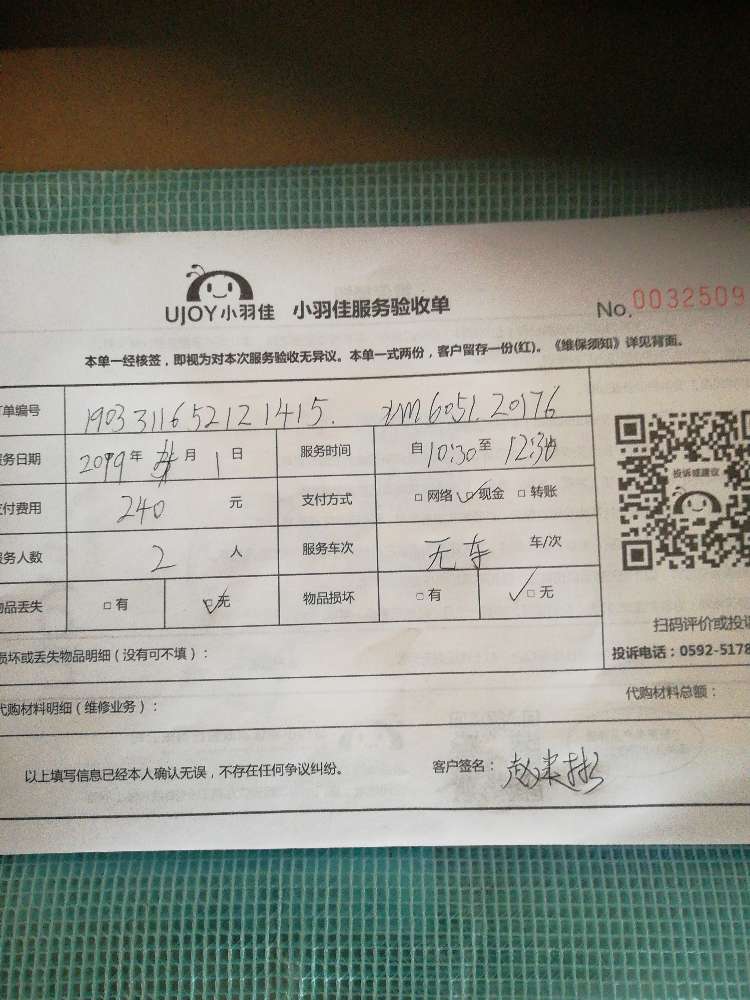 UJOY小羽佳 小羽佳服务验收单
No.0032509
本单一经核签，即视为对本次服务验收无异议。本单一式两份，客户留存一份(红)。《维保须知》详见背面。
单编号 190331165212 1415. XM6051.20176
务日期 2019年 月1日 服务时间 自10:30至12:30
付费用 240 元 支付方式 □网络 ☑现金 □转账
务人数 2 人 服务车次 无车 车/次
品丢失 □有 ☑无 物品损坏 □有 ☑无
投诉或建议
扫码评价或投诉
损坏或丢失物品明细（没有可不填）：
投诉电话：0592-5178
代购材料明细（维修业务）：
代购材料总额：
以上填写信息已经本人确认无误，不存在任何争议纠纷。 客户签名：赵建彬